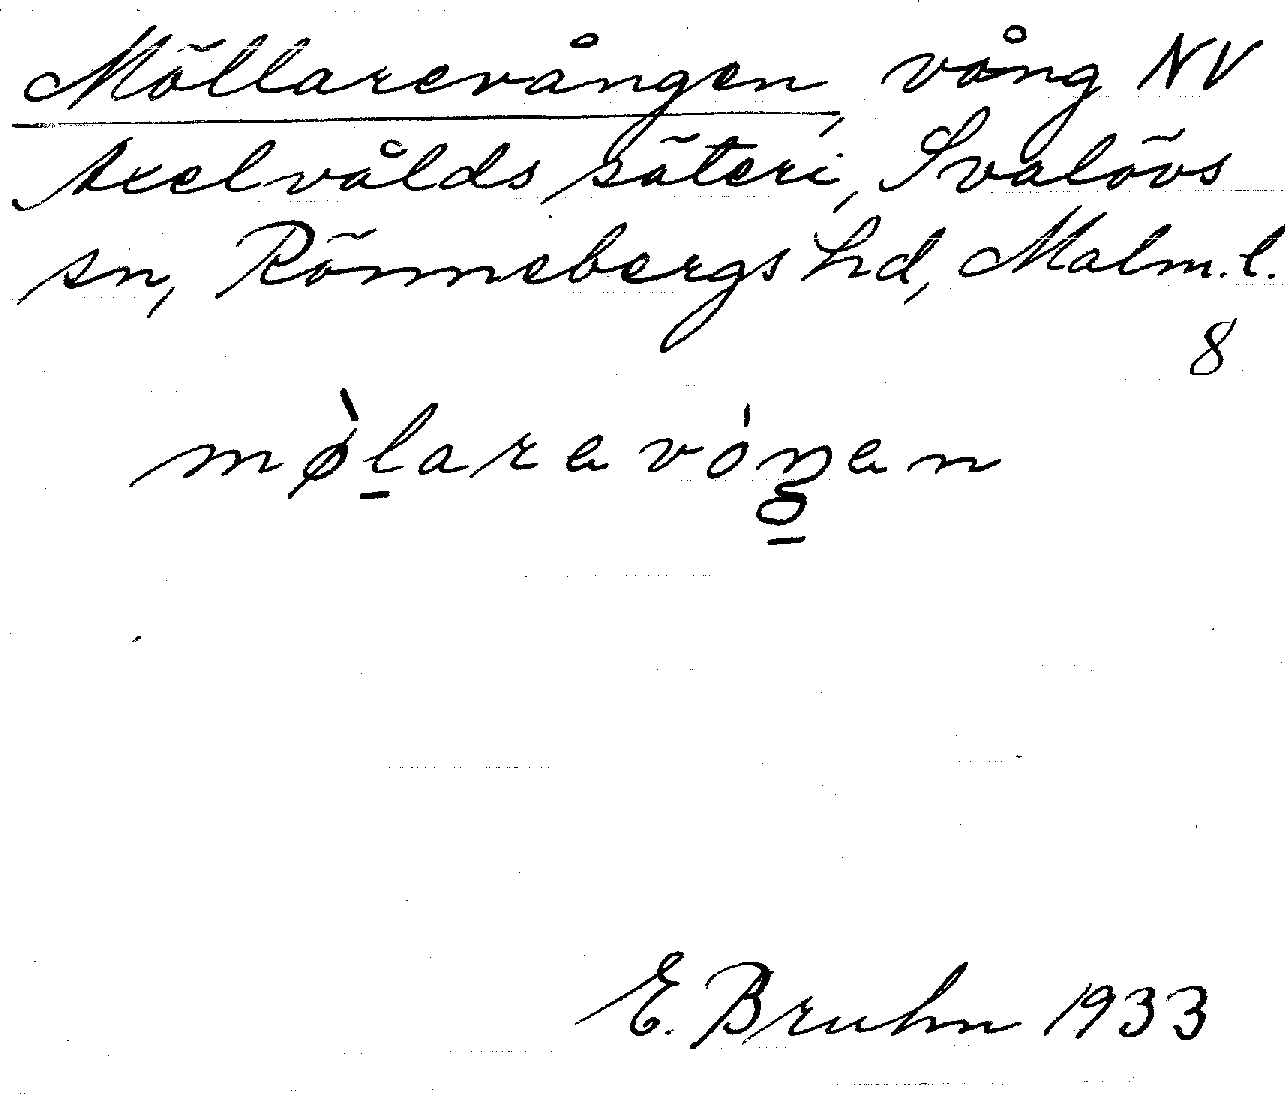 Möllarevången, vång NV
Axelvålds säteri, Svalövs
sn, Rönnebergs hd, Malm.l.
8
mø̀ḻaravóŋ̱an
E. Bruhn 1933